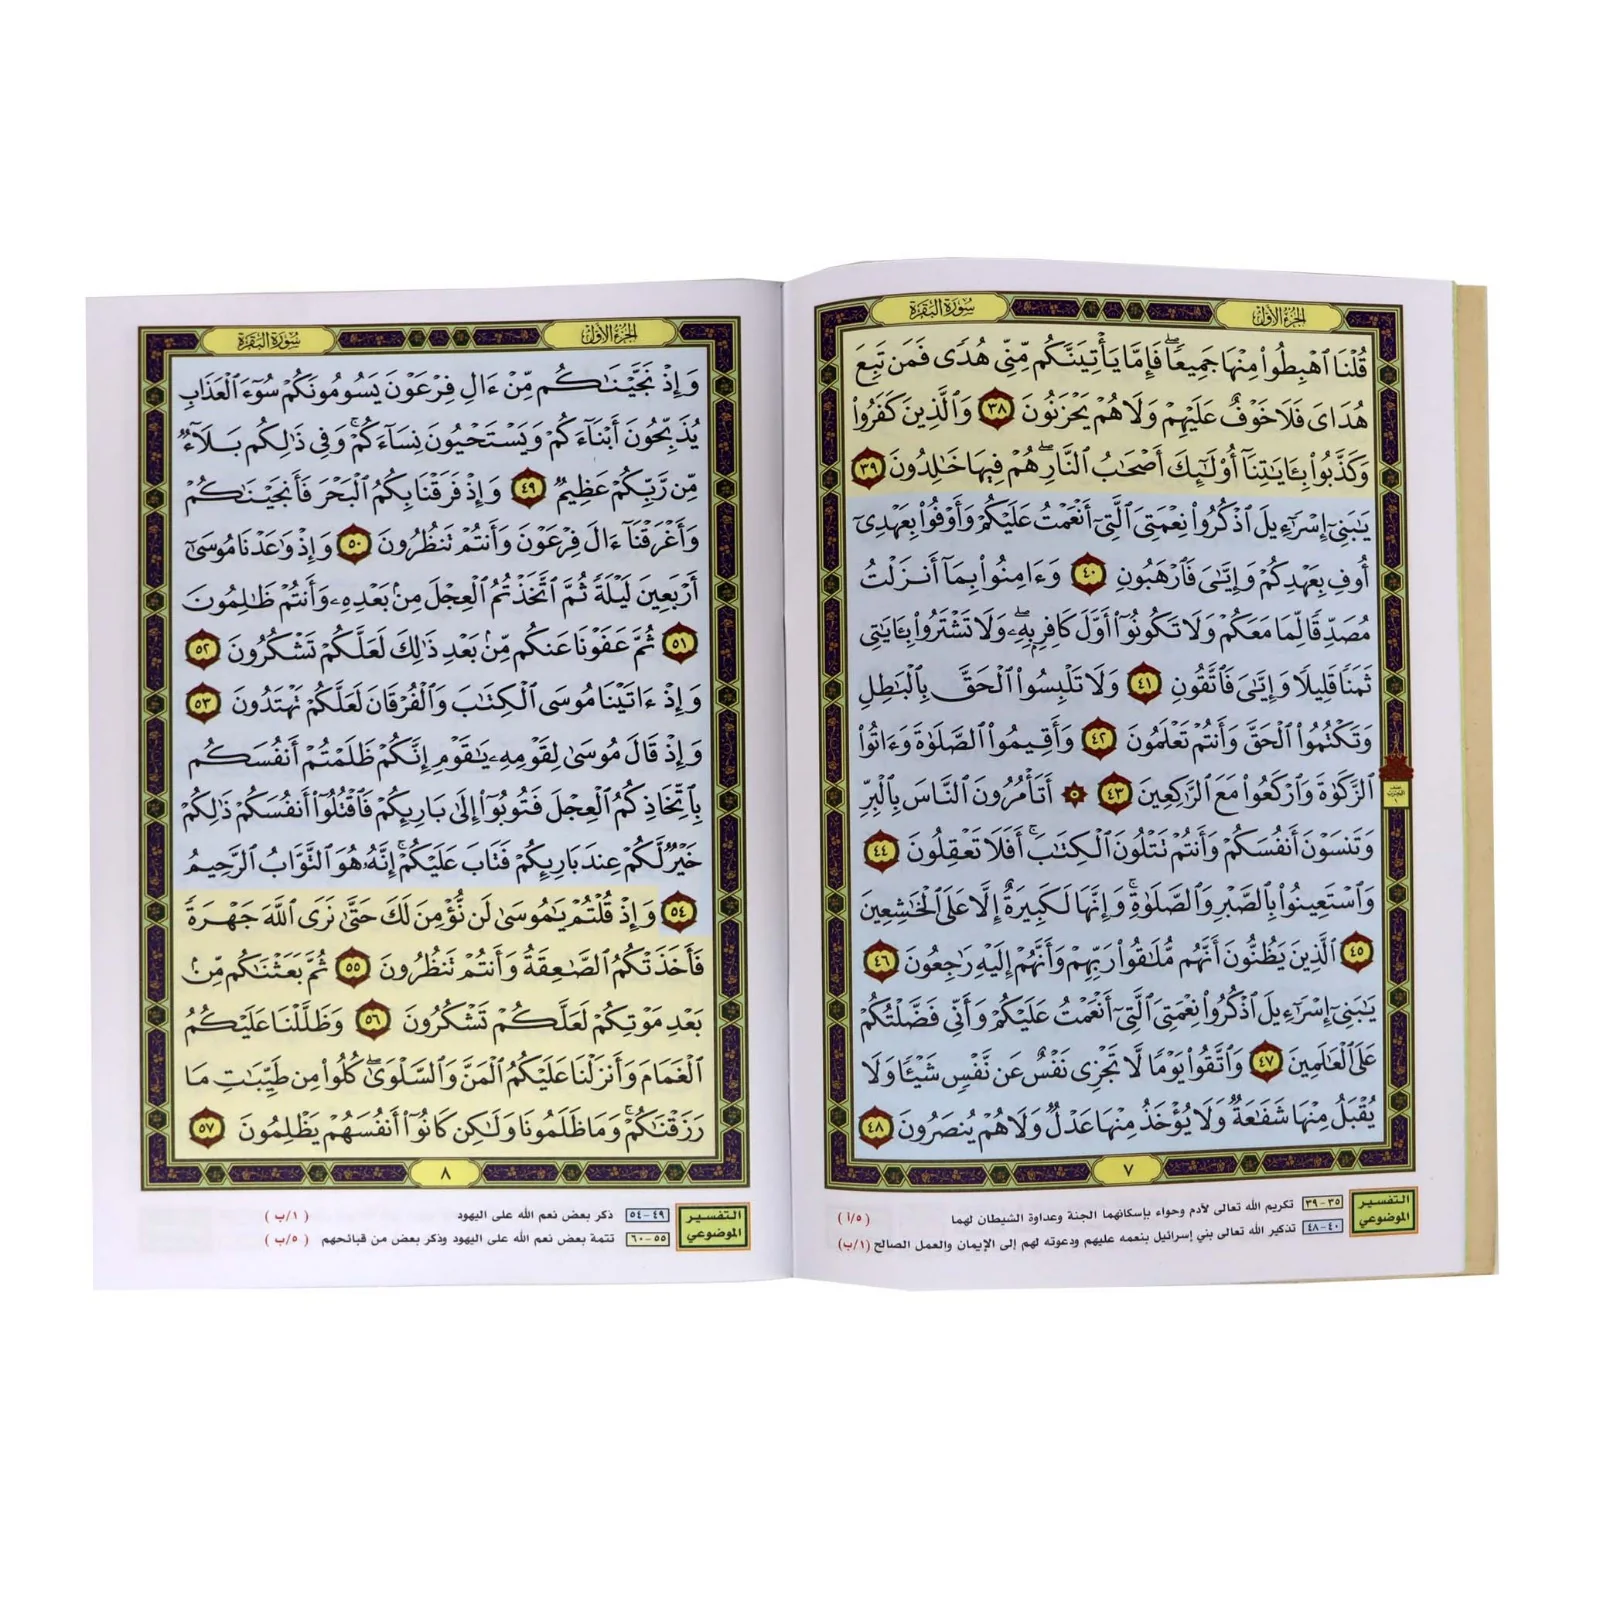 الجزء الأول
سورة البقرة
قُلْنَا ٱهْبِطُوا۟ مِنْهَا جَمِيعًا ۖ فَإِمَّا يَأْتِيَنَّكُم مِّنِّى هُدًى فَمَن تَبِعَ
هُدَاىَ فَلَا خَوْفٌ عَلَيْهِمْ وَلَا هُمْ يَحْزَنُونَ ٣٨ وَٱلَّذِينَ كَفَرُوا۟
وَكَذَّبُوا۟ بِـَٔايَـٰتِنَآ أُو۟لَـٰٓئِكَ أَصْحَـٰبُ ٱلنَّارِ ۖ هُمْ فِيهَا خَـٰلِدُونَ ٣٩
يَـٰبَنِىٓ إِسْرَٰٓءِيلَ ٱذْكُرُوا۟ نِعْمَتِىَ ٱلَّتِىٓ أَنْعَمْتُ عَلَيْكُمْ وَأَوْفُوا۟ بِعَهْدِىٓ
أُوفِ بِعَهْدِكُمْ وَإِيَّـٰىَ فَٱرْهَبُونِ ٤٠ وَءَامِنُوا۟ بِمَآ أَنزَلْتُ
مُصَدِّقًا لِّمَا مَعَكُمْ وَلَا تَكُونُوٓا۟ أَوَّلَ كَافِرٍۭ بِهِۦ ۖ وَلَا تَشْتَرُوا۟ بِـَٔايَـٰتِى
ثَمَنًا قَلِيلًا وَإِيَّـٰىَ فَٱتَّقُونِ ٤١ وَلَا تَلْبِسُوا۟ ٱلْحَقَّ بِٱلْبَـٰطِلِ
وَتَكْتُمُوا۟ ٱلْحَقَّ وَأَنتُمْ تَعْلَمُونَ ٤٢ وَأَقِيمُوا۟ ٱلصَّلَوٰةَ وَءَاتُوا۟
ٱلزَّكَوٰةَ وَٱرْكَعُوا۟ مَعَ ٱلرَّٰكِعِينَ ٤٣ ۞ أَتَأْمُرُونَ ٱلنَّاسَ بِٱلْبِرِّ
وَتَنسَوْنَ أَنفُسَكُمْ وَأَنتُمْ تَتْلُونَ ٱلْكِتَـٰبَ ۚ أَفَلَا تَعْقِلُونَ ٤٤
وَٱسْتَعِينُوا۟ بِٱلصَّبْرِ وَٱلصَّلَوٰةِ ۚ وَإِنَّهَا لَكَبِيرَةٌ إِلَّا عَلَى ٱلْخَـٰشِعِينَ
٤٥ ٱلَّذِينَ يَظُنُّونَ أَنَّهُم مُّلَـٰقُوا۟ رَبِّهِمْ وَأَنَّهُمْ إِلَيْهِ رَٰجِعُونَ ٤٦
يَـٰبَنِىٓ إِسْرَٰٓءِيلَ ٱذْكُرُوا۟ نِعْمَتِىَ ٱلَّتِىٓ أَنْعَمْتُ عَلَيْكُمْ وَأَنِّى فَضَّلْتُكُمْ
عَلَى ٱلْعَـٰلَمِينَ ٤٧ وَٱتَّقُوا۟ يَوْمًا لَّا تَجْزِى نَفْسٌ عَن نَّفْسٍ شَيْـًٔا وَلَا
يُقْبَلُ مِنْهَا شَفَـٰعَةٌ وَلَا يُؤْخَذُ مِنْهَا عَدْلٌ وَلَا هُمْ يُنصَرُونَ ٤٨
٧
التفسير الموضوعي
٣٥-٣٩ تكريم الله تعالى لآدم وحواء بإسكانهما الجنة وعداوة الشيطان لهما (٥/أ)
٤٠-٤٨ تذكير الله تعالى بني إسرائيل بنعمه عليهم ودعوته لهم إلى الإيمان والعمل الصالح (١/ب)
الجزء الأول
سورة البقرة
وَإِذْ نَجَّيْنَـٰكُم مِّنْ ءَالِ فِرْعَوْنَ يَسُومُونَكُمْ سُوٓءَ ٱلْعَذَابِ
يُذَبِّحُونَ أَبْنَآءَكُمْ وَيَسْتَحْيُونَ نِسَآءَكُمْ ۚ وَفِى ذَٰلِكُم بَلَآءٌ
مِّن رَّبِّكُمْ عَظِيمٌ ٤٩ وَإِذْ فَرَقْنَا بِكُمُ ٱلْبَحْرَ فَأَنجَيْنَـٰكُمْ
وَأَغْرَقْنَآ ءَالَ فِرْعَوْنَ وَأَنتُمْ تَنظُرُونَ ٥٠ وَإِذْ وَٰعَدْنَا مُوسَىٰٓ
أَرْبَعِينَ لَيْلَةً ثُمَّ ٱتَّخَذْتُمُ ٱلْعِجْلَ مِنۢ بَعْدِهِۦ وَأَنتُمْ ظَـٰلِمُونَ
٥١ ثُمَّ عَفَوْنَا عَنكُم مِّنۢ بَعْدِ ذَٰلِكَ لَعَلَّكُمْ تَشْكُرُونَ ٥٢
وَإِذْ ءَاتَيْنَا مُوسَى ٱلْكِتَـٰبَ وَٱلْفُرْقَانَ لَعَلَّكُمْ تَهْتَدُونَ ٥٣
وَإِذْ قَالَ مُوسَىٰ لِقَوْمِهِۦ يَـٰقَوْمِ إِنَّكُمْ ظَلَمْتُمْ أَنفُسَكُم
بِٱتِّخَاذِكُمُ ٱلْعِجْلَ فَتُوبُوٓا۟ إِلَىٰ بَارِئِكُمْ فَٱقْتُلُوٓا۟ أَنفُسَكُمْ ذَٰلِكُمْ
خَيْرٌ لَّكُمْ عِندَ بَارِئِكُمْ فَتَابَ عَلَيْكُمْ ۚ إِنَّهُۥ هُوَ ٱلتَّوَّابُ ٱلرَّحِيمُ
٥٤ وَإِذْ قُلْتُمْ يَـٰمُوسَىٰ لَن نُّؤْمِنَ لَكَ حَتَّىٰ نَرَى ٱللَّهَ جَهْرَةً
فَأَخَذَتْكُمُ ٱلصَّـٰعِقَةُ وَأَنتُمْ تَنظُرُونَ ٥٥ ثُمَّ بَعَثْنَـٰكُم مِّنۢ
بَعْدِ مَوْتِكُمْ لَعَلَّكُمْ تَشْكُرُونَ ٥٦ وَظَلَّلْنَا عَلَيْكُمُ
ٱلْغَمَامَ وَأَنزَلْنَا عَلَيْكُمُ ٱلْمَنَّ وَٱلسَّلْوَىٰ ۖ كُلُوا۟ مِن طَيِّبَـٰتِ مَا
رَزَقْنَـٰكُمْ ۖ وَمَا ظَلَمُونَا وَلَـٰكِن كَانُوٓا۟ أَنفُسَهُمْ يَظْلِمُونَ ٥٧
٨
التفسير الموضوعي
٤٩-٥٤ ذكر بعض نعم الله على اليهود (١/ب)
٥٥-٦٠ تتمة بعض نعم الله على اليهود وذكر بعض من قبائحهم (٥/ب)